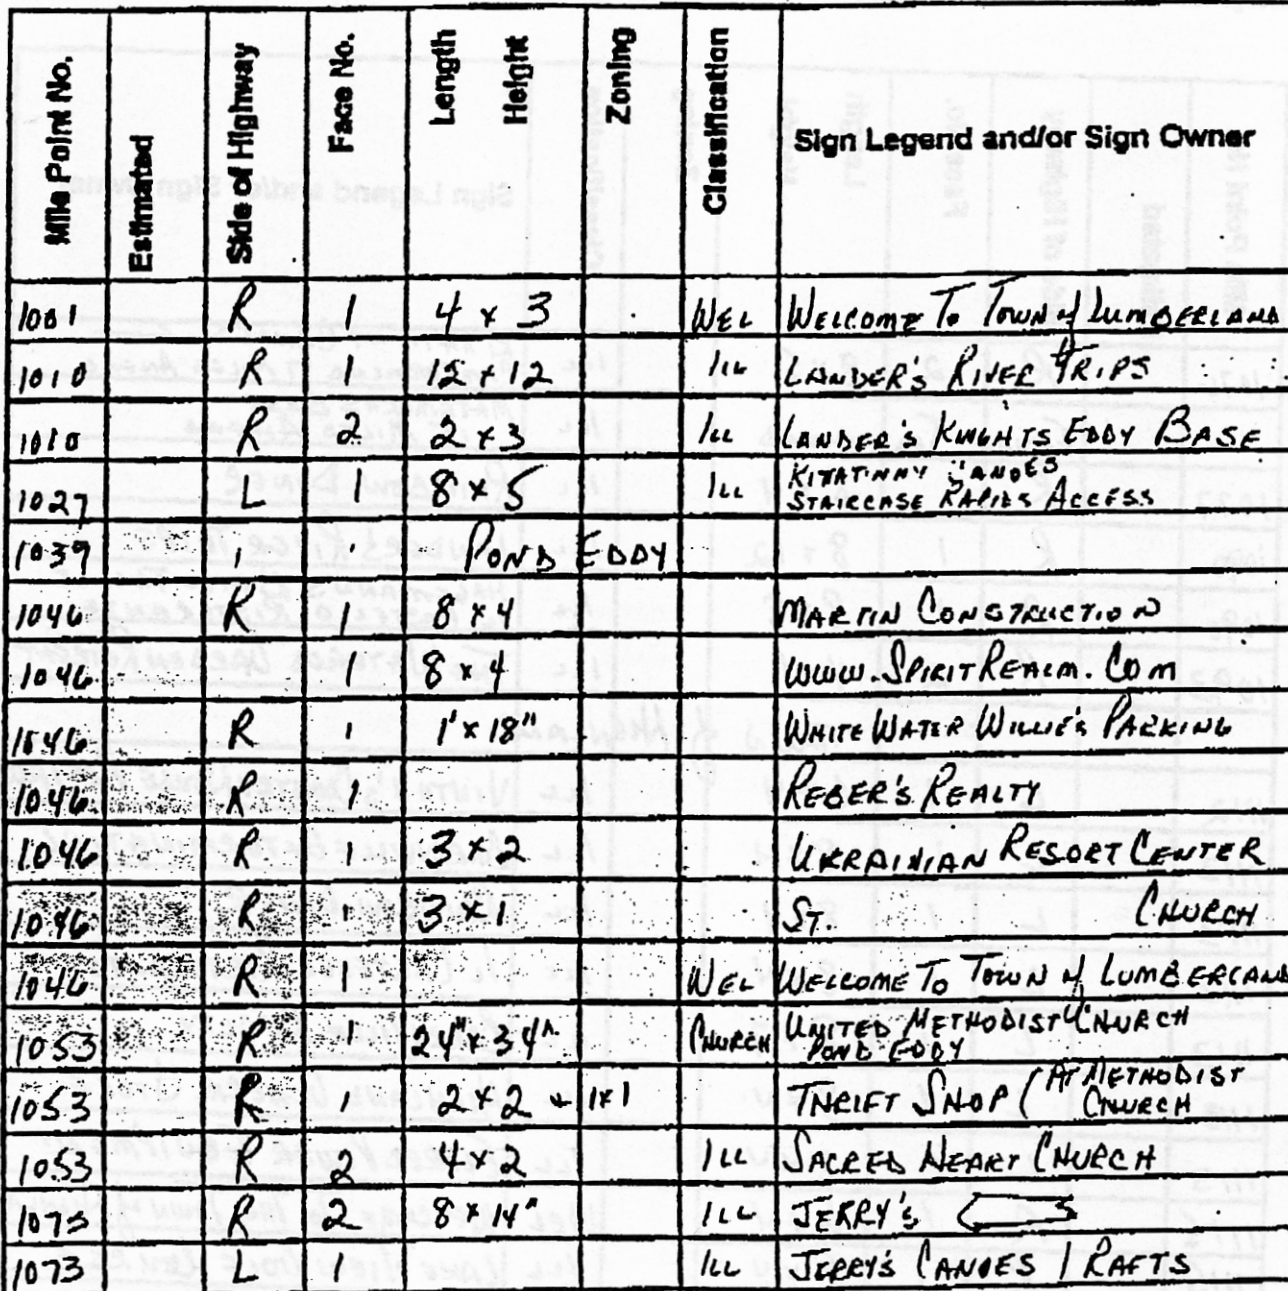 Mile Point No. Estimated Side of Highway Face No. Length Height Zoning Classification Sign Legend and/or Sign Owner
1001 R 1 4 x 3 WEL WELCOME TO TOWN of LUMBERLAND
1010 R 1 12 x 12 ILL LANDER'S RIVER TRIPS
1010 R 2 2 x 3 ILL LANDER'S KNIGHTS EDDY BASE
1027 L 1 8 x 5 ILL KITATINNY CANOES
STAIRCASE RAPIDS ACCESS
1039 POND EDDY
1046 R 1 8 x 4 MARTIN CONSTRUCTION
1046 1 8 x 4 WWW.SPIRITREALM.COM
1046 R 1 1' x 18" WHITE WATER WILLIE'S PARKING
1046 R 1 REBER'S REALTY
1046 R 1 3 x 2 UKRAINIAN RESORT CENTER
1046 R 1 3 x 1 ST. CHURCH
1046 R 1 WEL WELCOME TO TOWN of LUMBERLAND
1053 R 1 24" x 34" CHURCH UNITED METHODIST CHURCH
POND EDDY
1053 R 1 2 x 2 + 1x1 THRIFT SHOP (AT METHODIST
CHURCH
1053 R 2 4 x 2 ILL SACRED HEART CHURCH
1073 R 2 8 x 14" ILL JERRY'S
1073 L 1 ILL JERRY'S CANOES / RAFTS